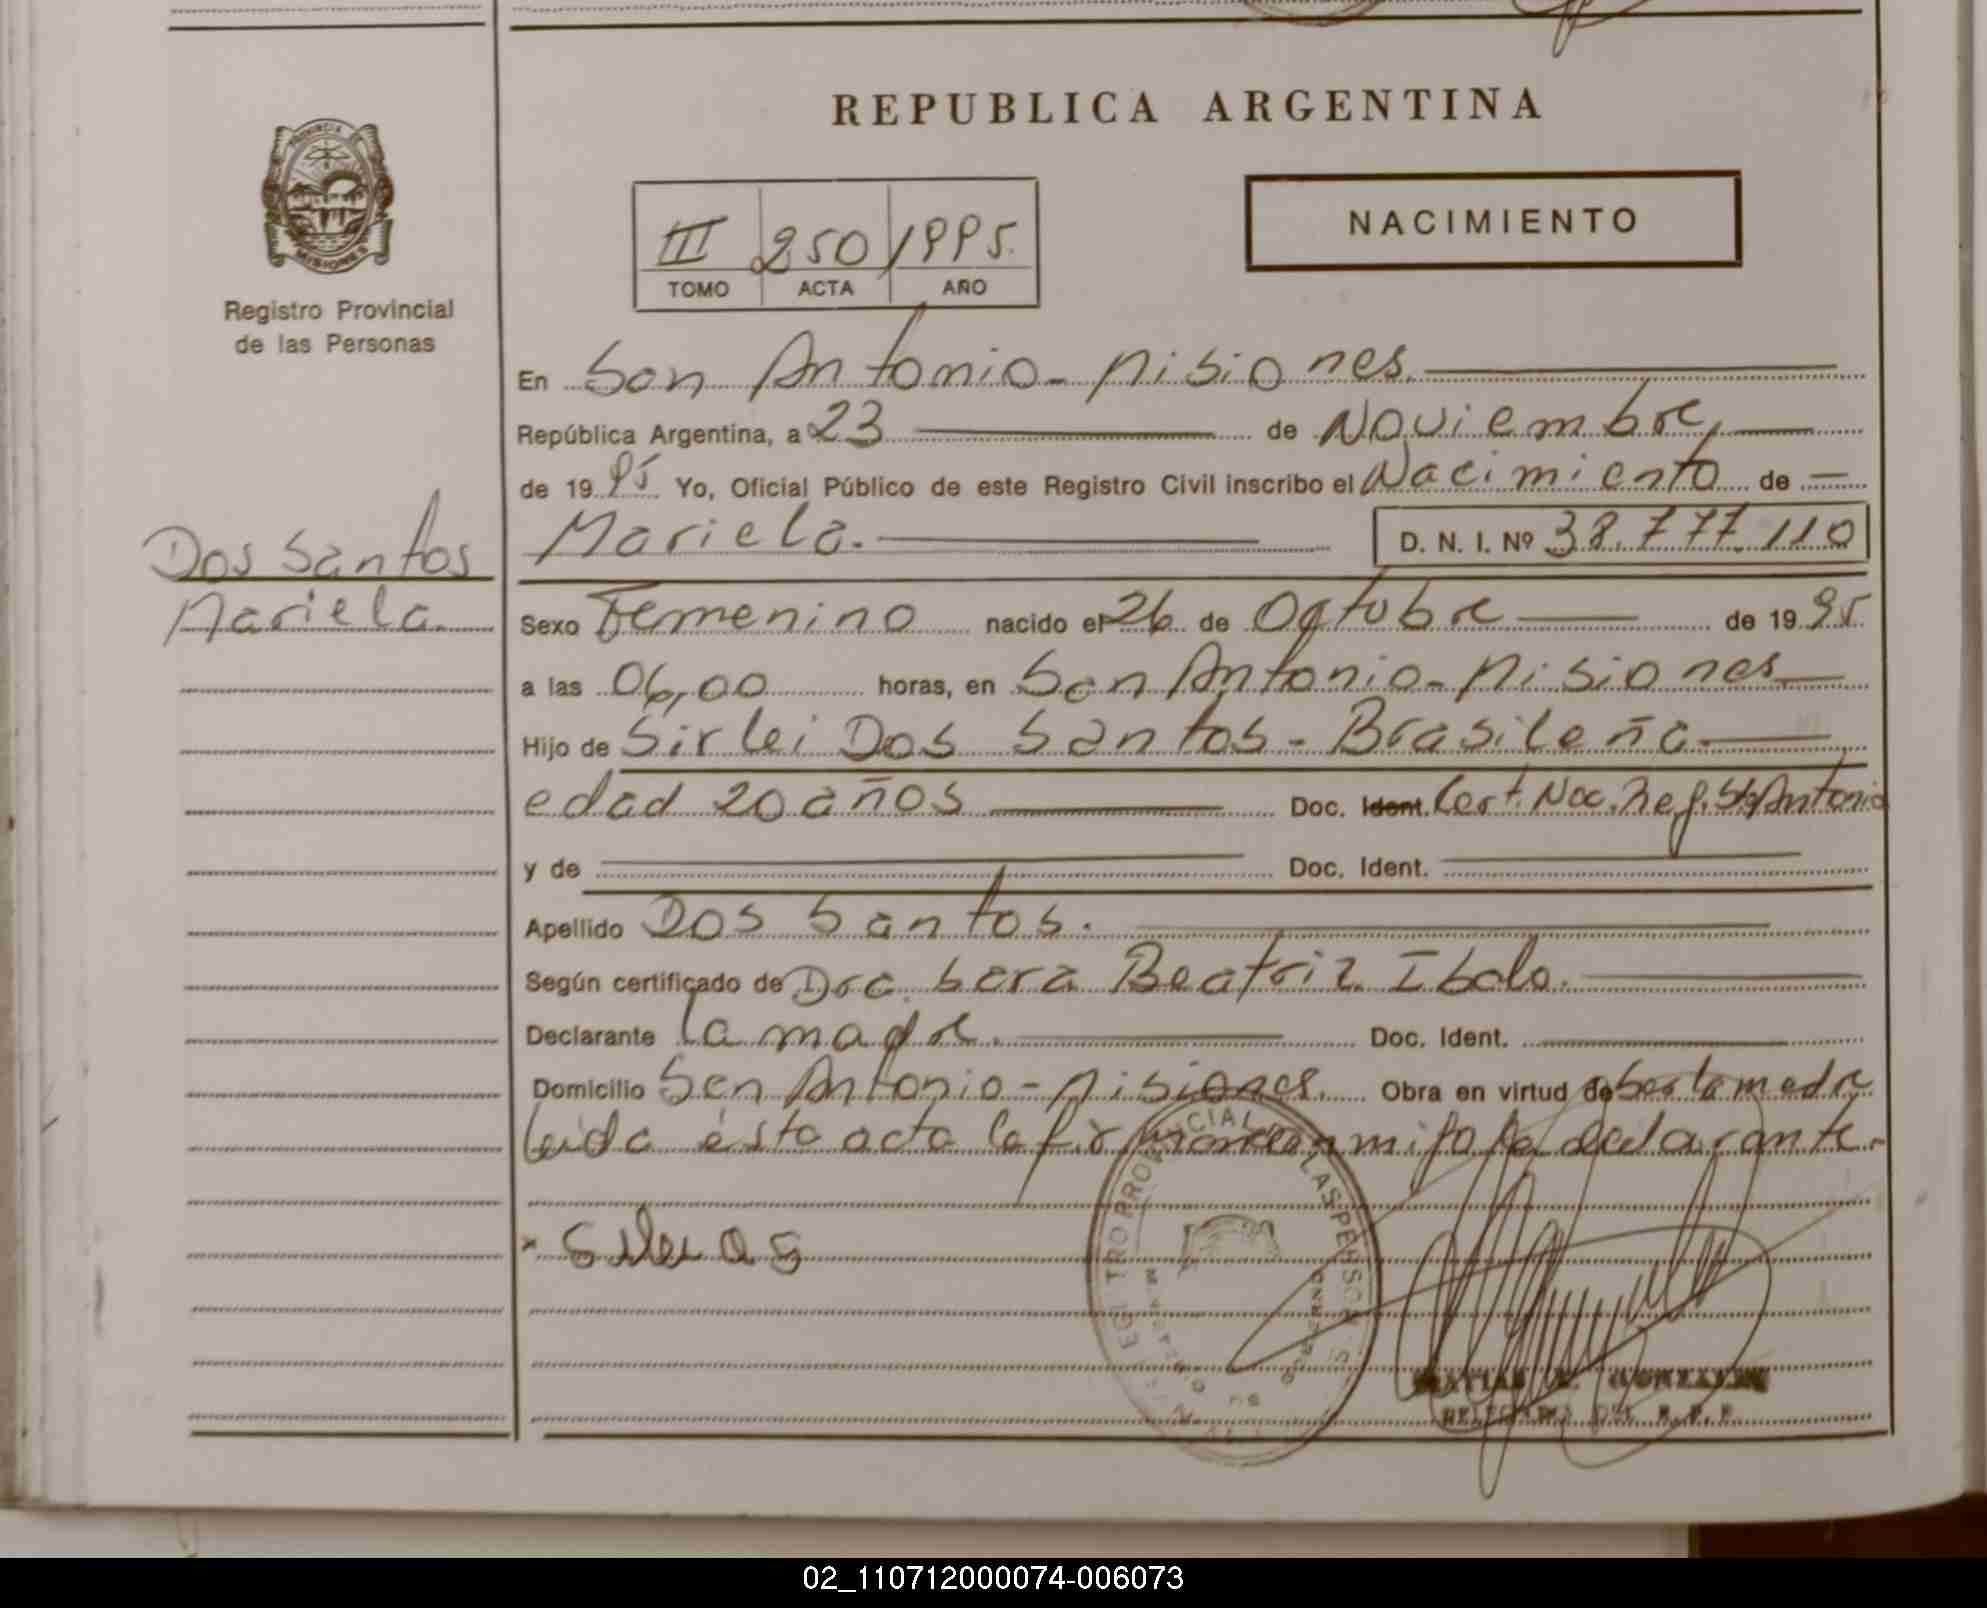 REPUBLICA ARGENTINA
PROVINCIA DE
MISIONES
Registro Provincial
de las Personas
NACIMIENTO
III 250 1995.
TOMO ACTA AÑO
En San Antonio - Misiones.
República Argentina, a 23 de Noviembre,
de 19 95 Yo, Oficial Público de este Registro Civil inscribo el Nacimiento de
Dos Santos
Mariela.
Mariela. D. N. I. Nº 38.777.110
Sexo Femenino nacido el 26 de Octubre de 19 95.
a las 06,00 horas, en San Antonio - Misiones
Hijo de Sirlei Dos Santos - Brasileña
edad 20 años Doc. Ident. Cert. Nac. Reg. Sto Antonio
y de Doc. Ident.
Apellido Dos Santos.
Según certificado de Dra. Sara Beatriz Ibalo.
Declarante La madre. Doc. Ident.
Domicilio San Antonio - Misiones. Obra en virtud de Ser la madre
Leida ésta acta la firma con migo la declarante.-
REGISTRO PROVINCIAL DE LAS PERSONAS
GOBIERNO
DELEGADO DEL R. P. P.
02_110712000074-006073